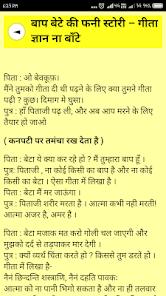 बाप बेटे की फनी स्टोरी – गीता
ज्ञान ना बाँटे
पिता : ओ बेवकूफ़!
मैंने तुमको गीता दी थी पढ़ने के लिए क्या तुमने गीता
पढ़ी ? कुछ। दिमाग मे घुसा।
पुत्र : हाँ पिताजी पढ़ ली, और अब आप मरने के लिए
तैयार हो जाओ
( कनपटी पर तमंचा रख देता है )
पिता : बेटा ये क्या कर रहे हो ? मैं तुम्हारा बाप हूँ ।
पुत्र : पिताजी , ना कोई किसी का बाप है और ना कोई
किसी का बेटा । ऐसा गीता में लिखा है ।
पिता : बेटा मैं मर जाऊंगा ।
पुत्र : पिताजी शरीर मरता है । आत्मा कभी नही मरती!
आत्मा अजर है, अमर है ।
पिता : बेटा मजाक मत करो गोली चल जाएगी और
मुझको दर्द से तड़पाकर मार देगी ।
पुत्र : क्यों व्यर्थ चिंता करते हो ? किससे तुम डरते हो ।
गीता में लिखा है-
नैनं छिन्दन्ति शस्त्राणि, नैनं दहति पावकः
आत्मा को ना पानी भिगो सकता है और ना ही तलवार